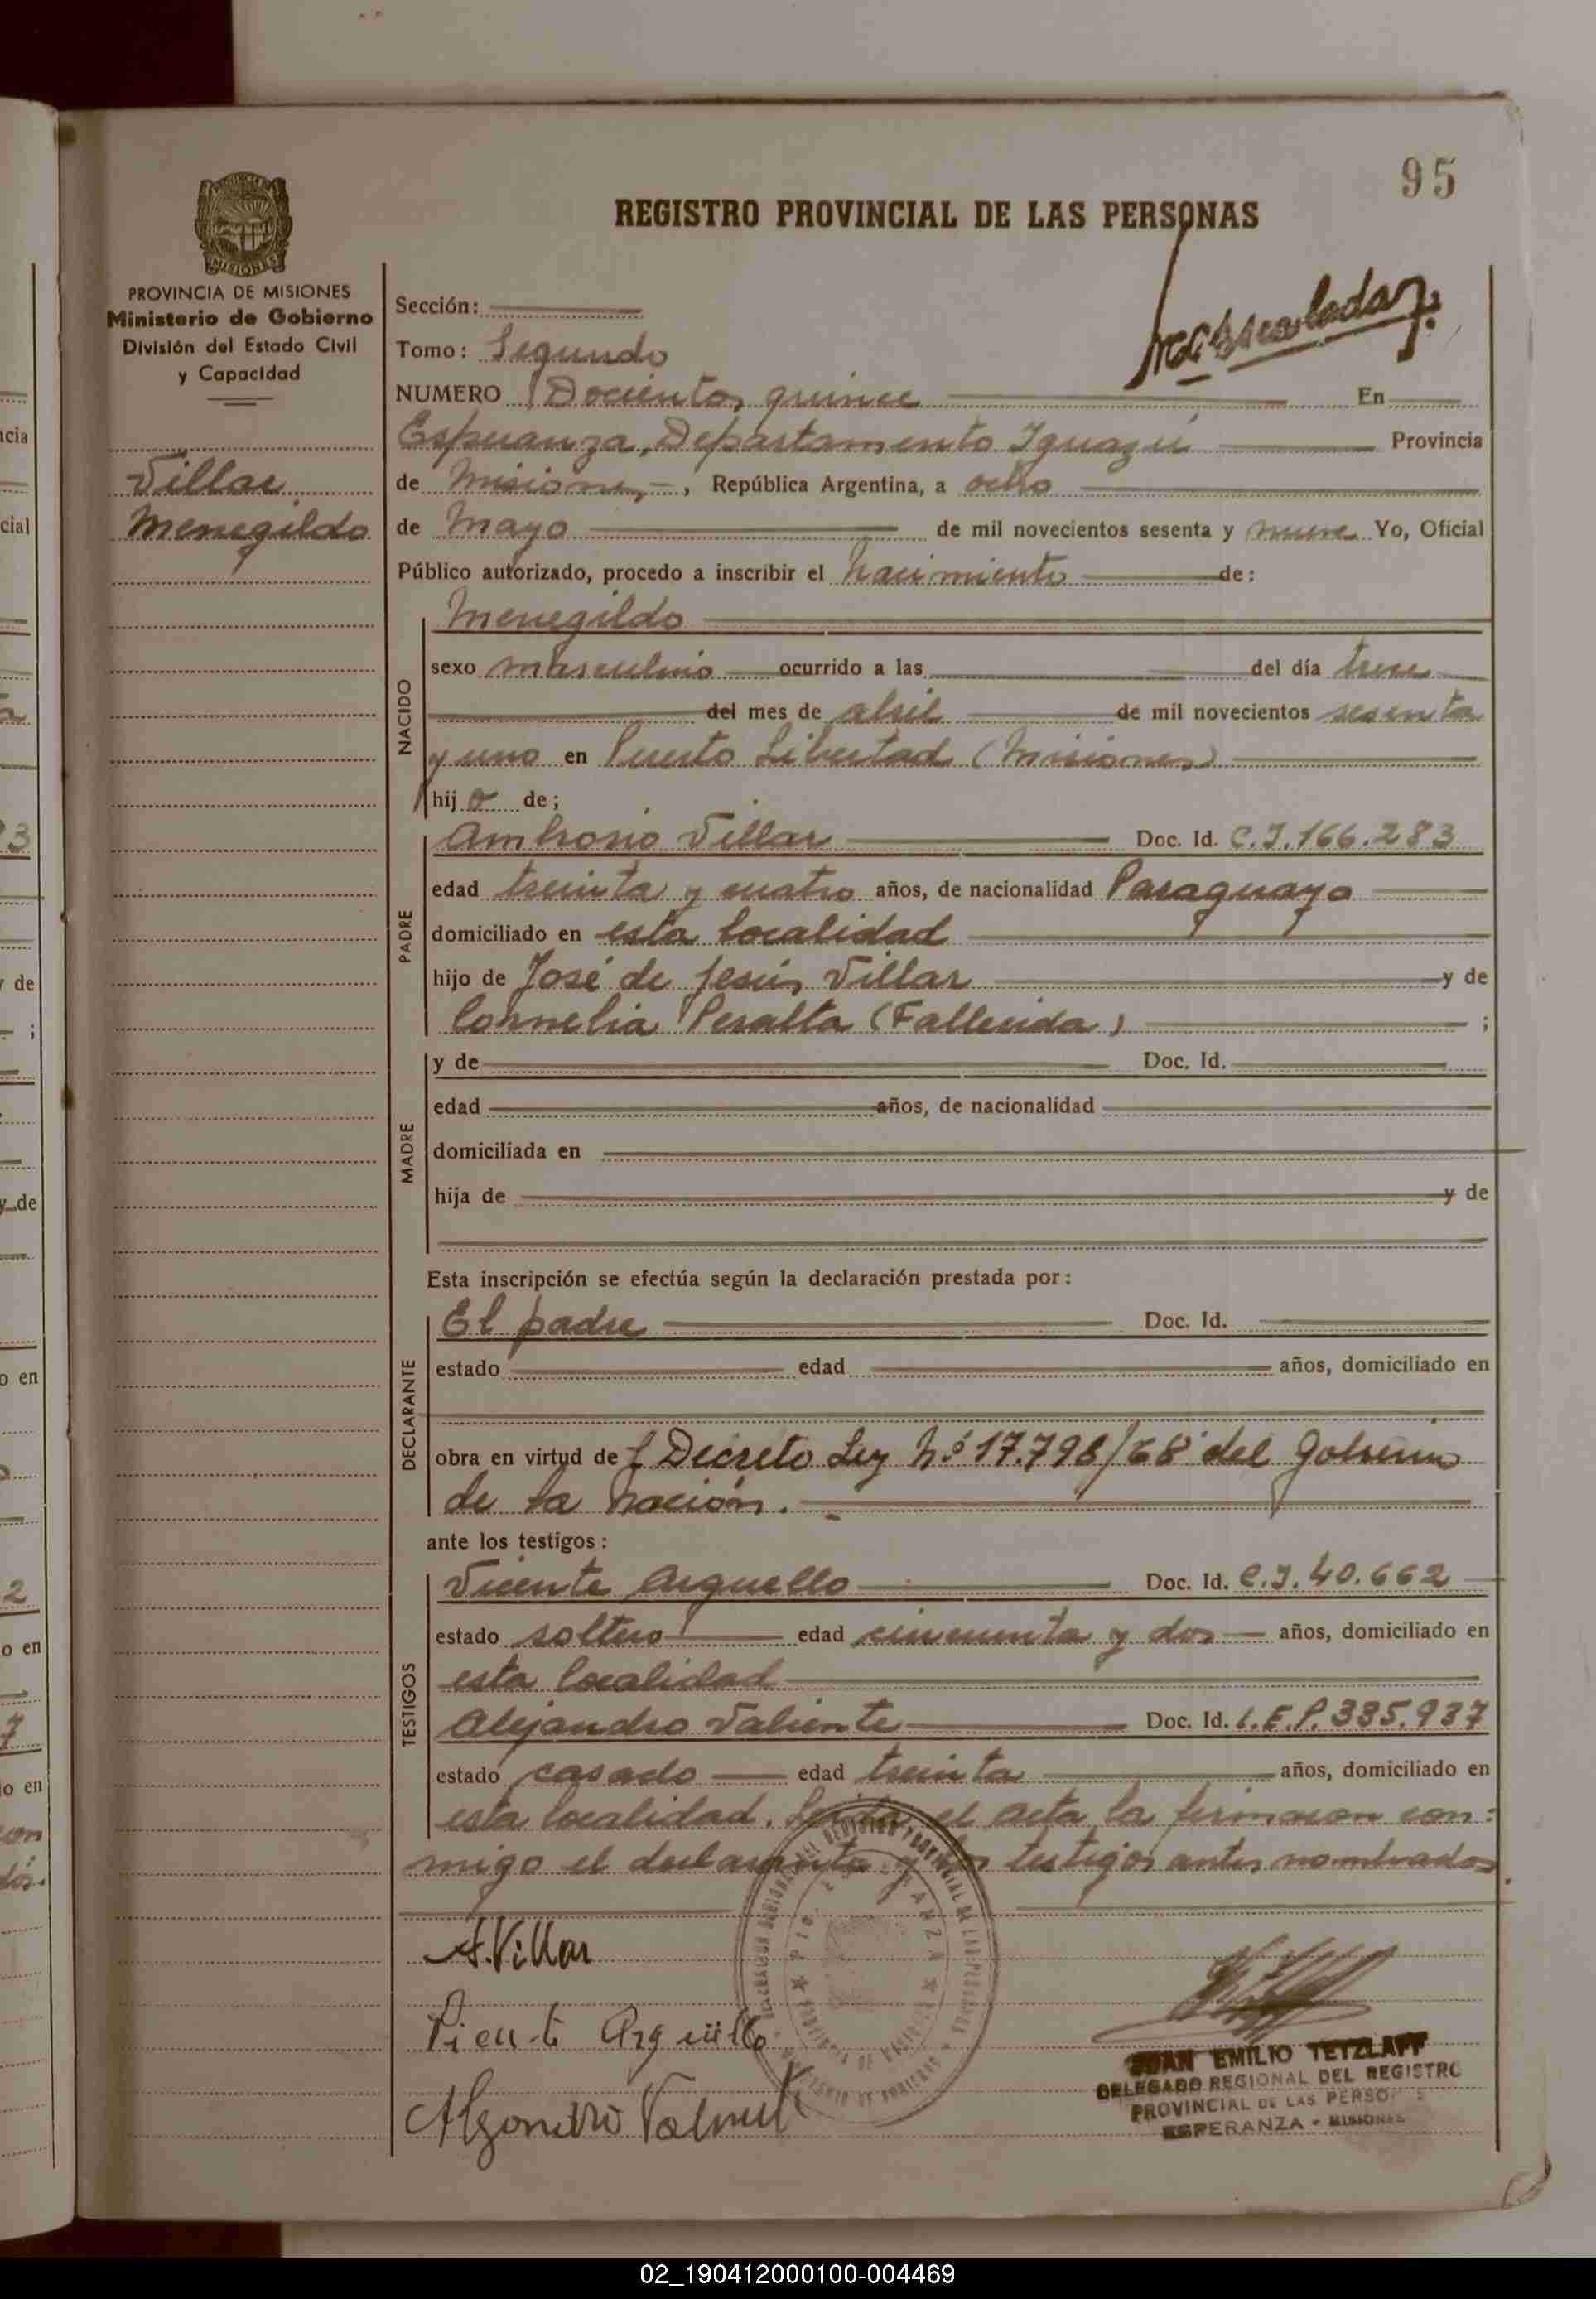 95
REGISTRO PROVINCIAL DE LAS PERSONAS
MISIONES
PROVINCIA DE MISIONES
Ministerio de Gobierno
División del Estado Civil
y Capacidad
Villar
Menegildo
Sección:
Tomo: Segundo
NUMERO Docientos quince En
Esperanza, Departamento Iguazú Provincia
de Misiones, República Argentina, a ocho
de Mayo de mil novecientos sesenta y nueve Yo, Oficial
Público autorizado, procedo a inscribir el Nacimiento de:
NACIDO
Menegildo
sexo masculino ocurrido a las del día trece
del mes de abril de mil novecientos sesenta
y uno en Puerto Libertad (Misiones)
hijo de;
PADRE
Ambrosio Villar Doc. Id. C.I.166.283
edad treinta y cuatro años, de nacionalidad Paraguayo
domiciliado en esta localidad
hijo de José de Jesús Villar y de
Cornelia Peralta (Fallecida) ;
MADRE
y de Doc. Id.
edad años, de nacionalidad
domiciliada en
hija de y de
Esta inscripción se efectúa según la declaración prestada por:
DECLARANTE
El padre Doc. Id.
estado edad años, domiciliado en
obra en virtud de Decreto Ley Nº 17.798/68 del Gobierno
de la Nación.
ante los testigos:
TESTIGOS
Vicente Arguello Doc. Id. C.I. 40.662
estado soltero edad cincuenta y dos años, domiciliado en
esta localidad
Alejandro Valiente Doc. Id. C.E.P. 335.937
estado casado edad treinta años, domiciliado en
esta localidad. Leída el acta la firmaron con=
migo el declarante y los testigos antes nombrados
A. Villar
Vicente Argüello
JUAN EMILIO TETZLAFF
DELEGADO REGIONAL DEL REGISTRO
PROVINCIAL DE LAS PERSONAS
ESPERANZA - MISIONES
02_190412000100-004469